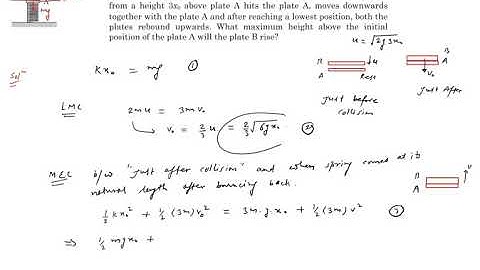 from a height 3x₀ above plate A hits the plate A, moves downwards
together with the plate A and after reaching a lowest position, both the
plates rebound upwards. What maximum height above the initial
position of the plate A will the plate B rise?
mg
u = √2g3x₀
Solⁿ
kx₀ = mg ①
B
A
↓u
Rest
B
A
↓v₀
Just before
collision
Just After
LMC
2mu = 3mv₀
↳ v₀ = 2/3 u = 2/3 √6gx₀ ②
MEC b/w "Just after collision" and when spring comes at its
natural length after bouncing back.
B
A
v
½ kx₀² + ½ (3m) v₀² = 3m·g·x₀ + ½ (3m) v² ③
⇒ ½ mgx₀ +